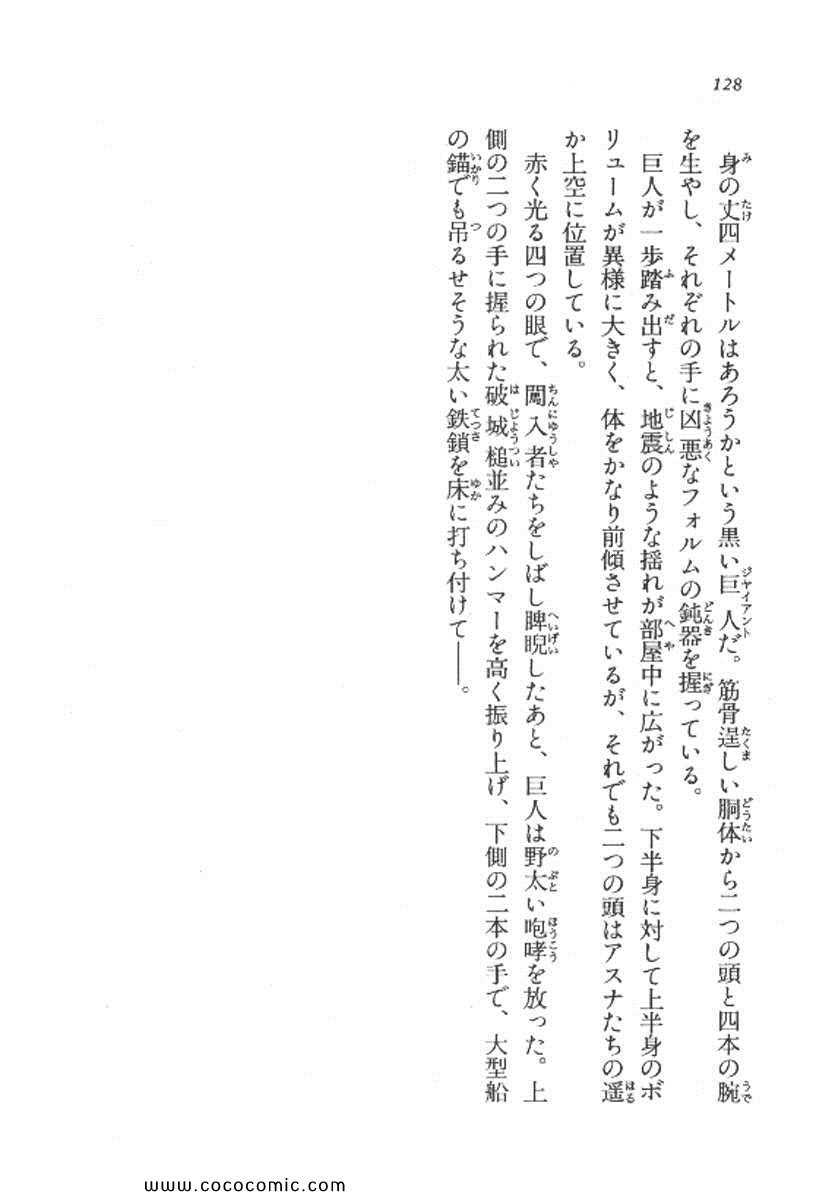 128
身の丈四メートルはあろうかという黒い巨人だ。筋骨逞しい胴体から二つの頭と四本の腕
を生やし、それぞれの手に凶悪なフォルムの鈍器を握っている。
巨人が一歩踏み出すと、地震のような揺れが部屋中に広がった。下半身に対して上半身のボ
リュームが異様に大きく、体をかなり前傾させているが、それでも二つの頭はアスナたちの遥
か上空に位置している。
赤く光る四つの眼で、闖入者たちをしばし睥睨したあと、巨人は野太い咆哮を放った。上
側の二つの手に握られた破城槌並みのハンマーを高く振り上げ、下側の二本の手で、大型船
の錨でも吊るせそうな太い鉄鎖を床に打ち付けて――。
www.cococomic.com